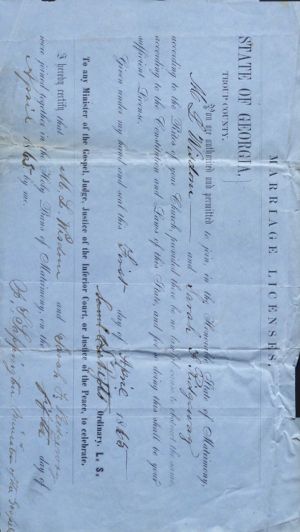 MARRIAGE LICENSES.
STATE OF GEORGIA,
TROUP COUNTY.
To any Minister of the Gospel, Judge, Justice of the Inferior Court, or Justice of the Peace, to celebrate.
You are authorized and permitted to join in the Honorable State of Matrimony,
M. L. Wisdom and Sarah F.
according to the Rites of your Church, provided there be no lawful cause to obstruct the same,
according to the Constitution and Laws of this State, and for so doing this shall be your
sufficient License.
Given under my hand and seal this First day of April 1865
Ordinary, L. S.
I hereby certify that M. L. Wisdom and Sarah F.
were joined together in the Holy Bans of Matrimony, on the day of
April 1865 by me.
Minister of the Gospel